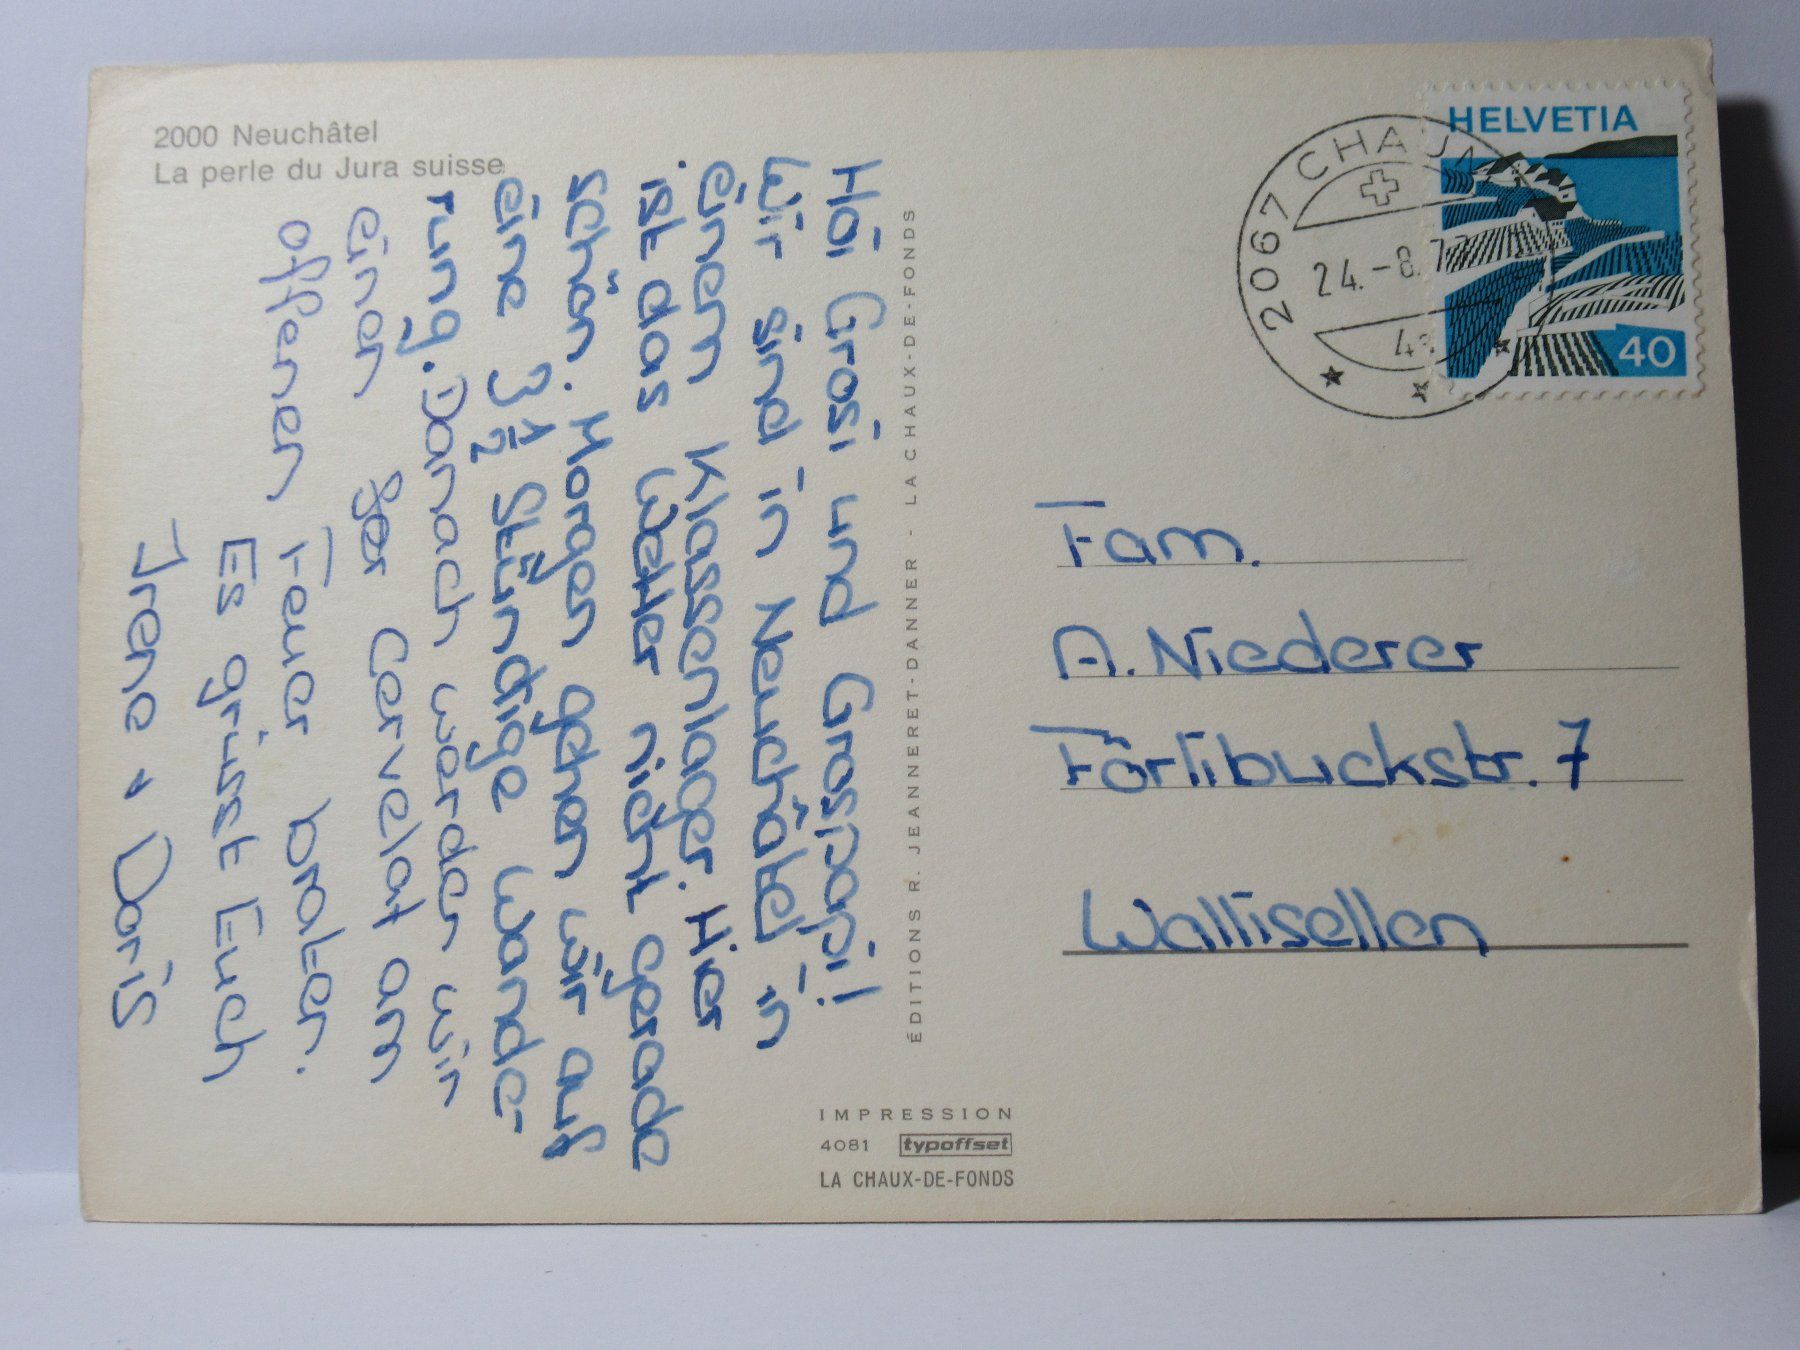 2000 Neuchâtel
La perle du Jura suisse
Höi Grosi und Grosipapi!
Wir sind in Neuchâtel in
einem Klassenlager. Hier
ist das Wetter nicht gerade
schön. Morgen gehen wir auf
eine 3 1/2 Stündtige wande-
rung. Danach werden wir
einen Cervelat am
offenen Feuer braten.
Es grüsst Euch
Irene + Doris
ÉDITIONS R. JEANNERET-DANNER - LA CHAUX-DE-FONDS
IMPRESSION
4081 typoffset
LA CHAUX-DE-FONDS
HELVETIA
40
2067 CHAU
24.-8.7
Fam.
A. Niederer
Förlibuckstr. 7
Wallisellen